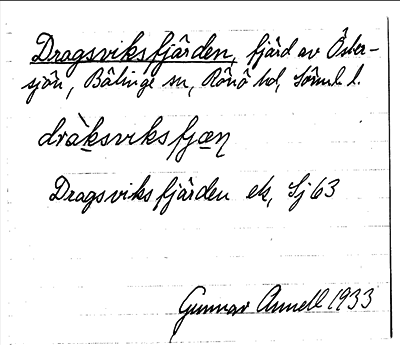 Dragsviksfjärden, fjärd av Öster-
sjön, Bälinge sn, Rönö hd, Söml. l.
dràksviksfjæ̣ṇ
Dragsviksfjärden ek, Sj 63
Gunnar Annell 1933